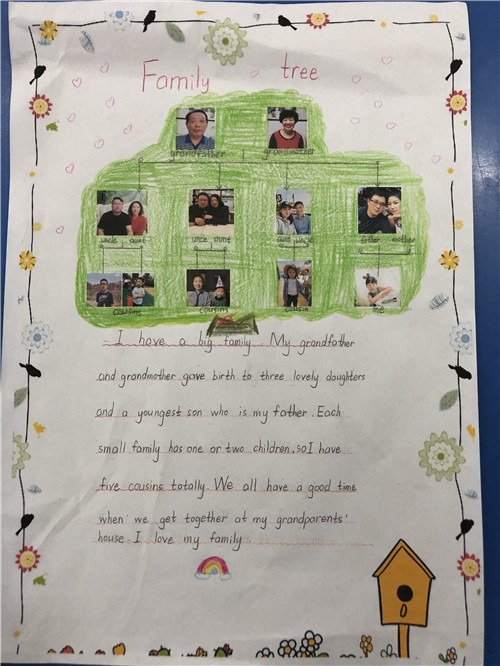 Family tree
grandfather grandmother
uncle aunt uncle aunt aunt uncle father mother
cousins cousins cousin me
I have a big family. My grandfather
and grandmother gave birth to three lovely daughters
and a youngest son who is my father. Each
small family has one or two children, so I have
five cousins totally. We all have a good time
when we get together at my grandparents'
house. I love my family.